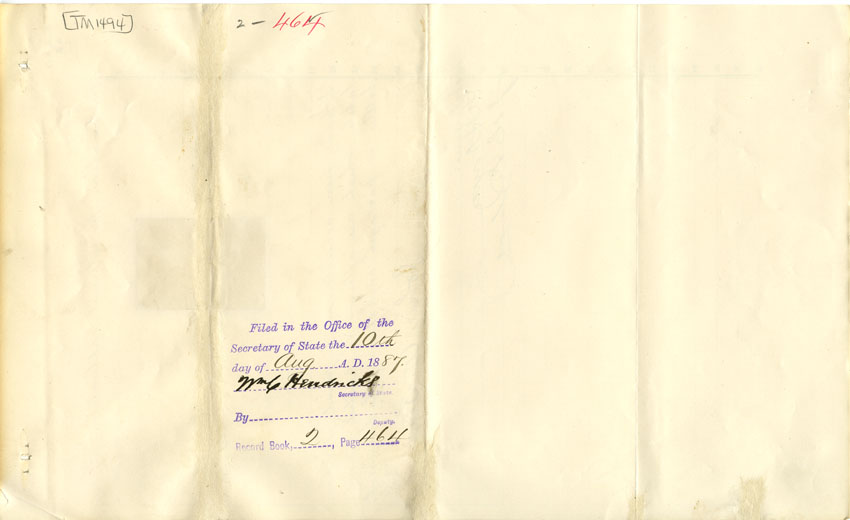 [TM1494]
2 - 464
Filed in the Office of the
Secretary of State the 10th
day of Aug A. D. 1887.
Wm C Hendricks
Secretary of State.
By
Deputy.
Record Book, 2, Page 464